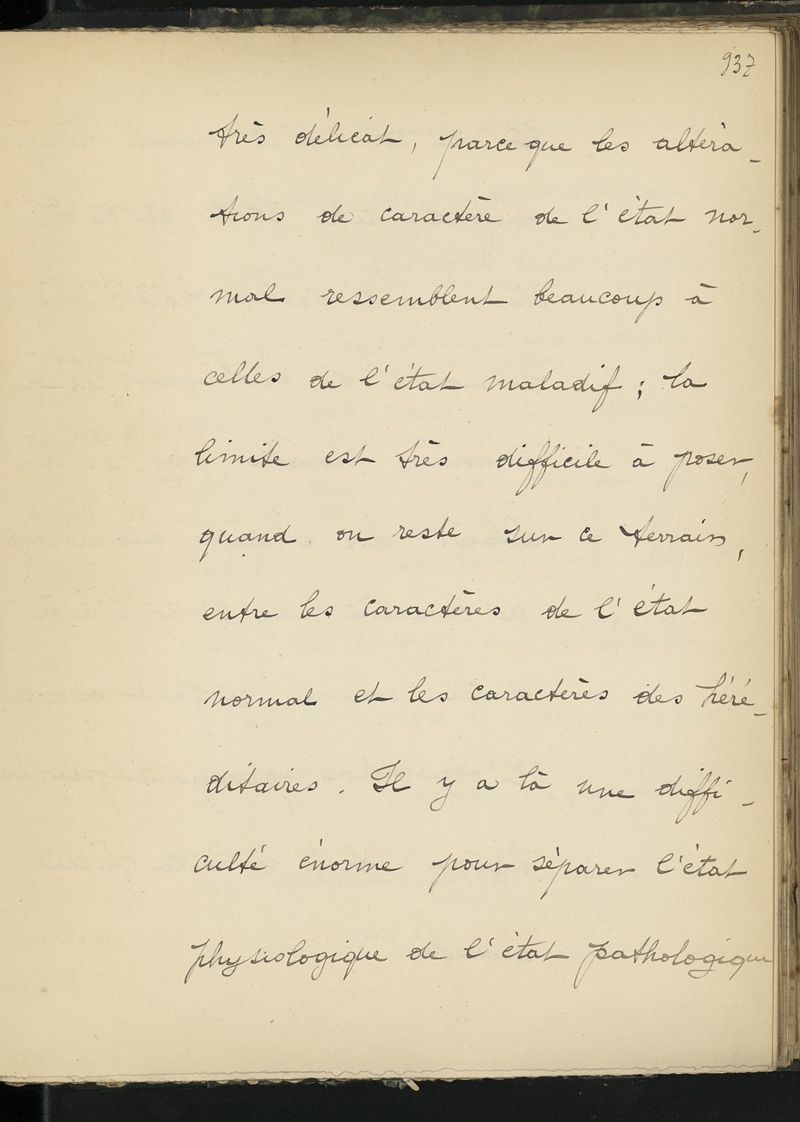 937
très délicat, parce que les altéra-
tions de caractère de l'état nor-
mal ressemblent beaucoup à
celles de l'état maladif ; la
limite est très difficile à poser,
quand on reste sur ce terrain,
entre les caractères de l'état
normal et les caractères des héré-
ditaires. Il y a là une diffi-
culté énorme pour séparer l'état
physiologique de l'état pathologique